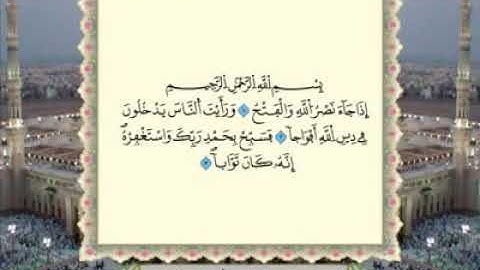 بِسْمِ اللَّهِ الرَّحْمَٰنِ الرَّحِيمِ
إِذَا جَآءَ نَصْرُ ٱللَّهِ وَٱلْفَتْحُ ١ وَرَأَيْتَ ٱلنَّاسَ يَدْخُلُونَ
فِي دِينِ ٱللَّهِ أَفْوَاجاً ٢ فَسَبِّحْ بِحَمْدِ رَبِّكَ وَٱسْتَغْفِرْهُ
إِنَّهُۥ كَانَ تَوَّاباًۢ ٣